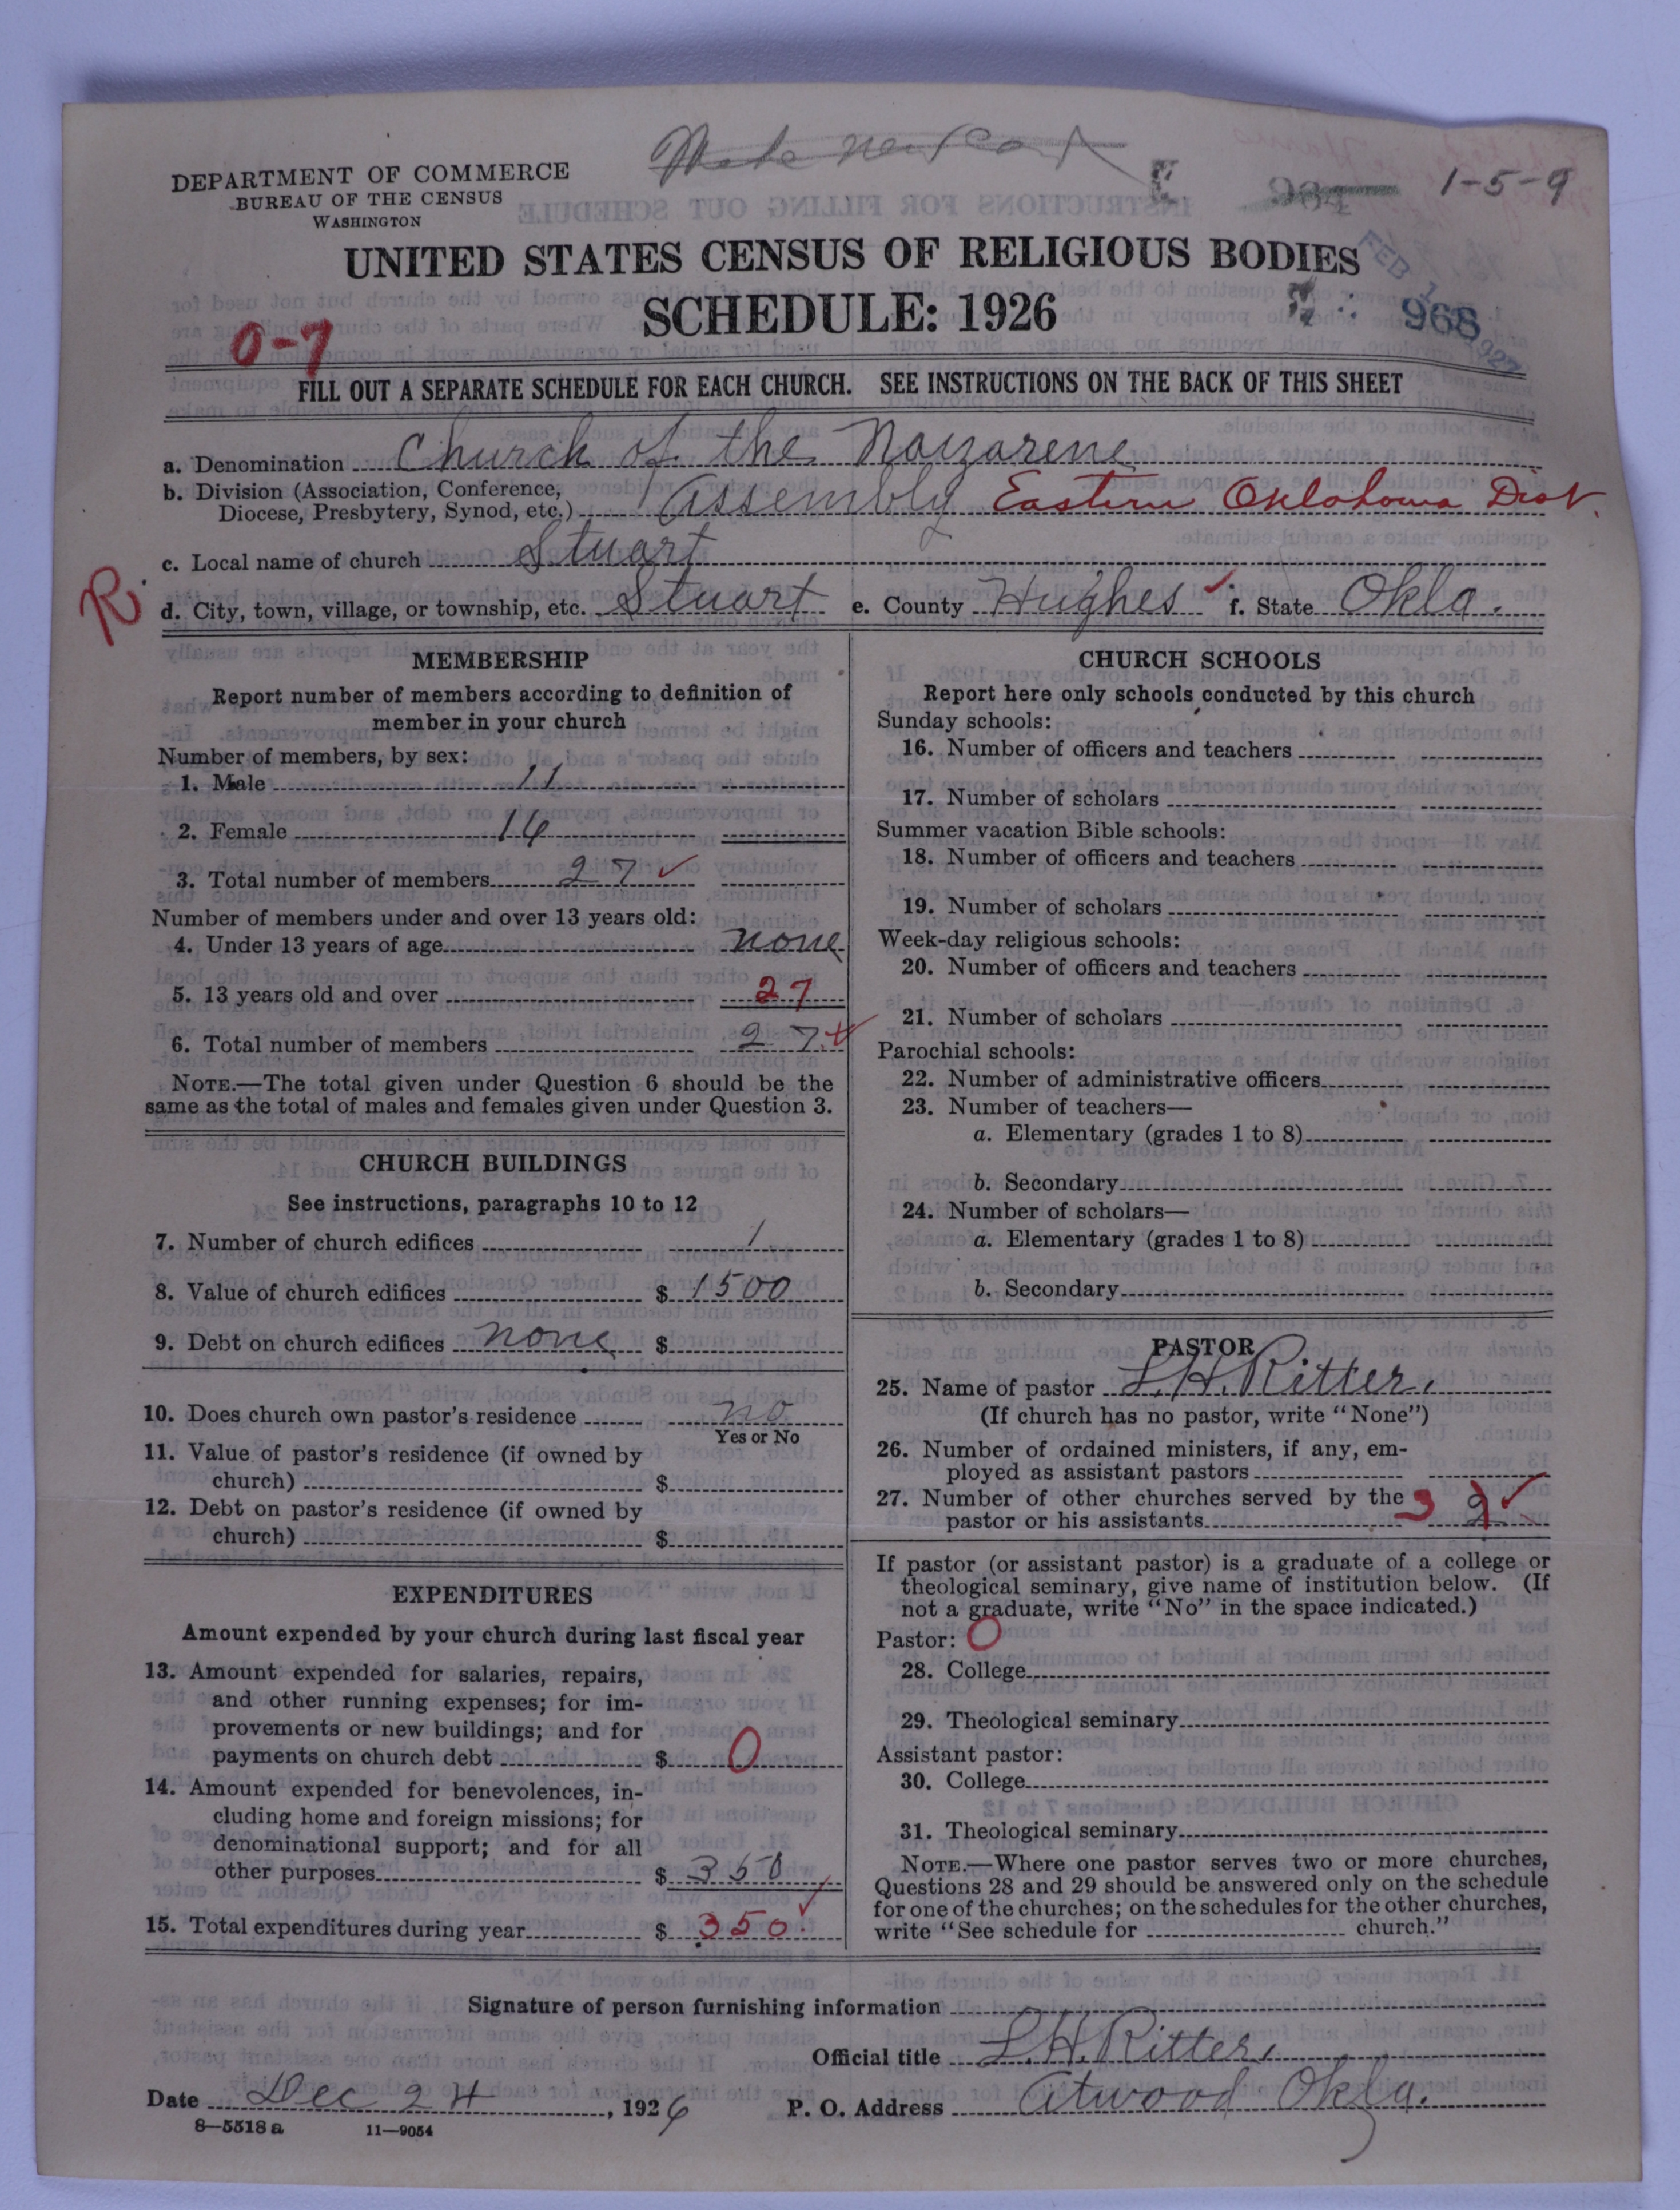 Make new card
DEPARTMENT OF COMMERCE
BUREAU OF THE CENSUS
WASHINGTON
964 1-5-9
UNITED STATES CENSUS OF RELIGIOUS BODIES
SCHEDULE: 1926
FEB 1927
968
0-7
FILL OUT A SEPARATE SCHEDULE FOR EACH CHURCH. SEE INSTRUCTIONS ON THE BACK OF THIS SHEET
a. Denomination Church of the Nazarene
b. Division (Association, Conference,
Diocese, Presbytery, Synod, etc.) Assembly Eastern Oklahoma Dist.
c. Local name of church Stuart
R.
d. City, town, village, or township, etc. Stuart e. County Hughes f. State Okla.
MEMBERSHIP
Report number of members according to definition of
member in your church
Number of members, by sex:
1. Male 11
2. Female 16
3. Total number of members 27 ✓
Number of members under and over 13 years old:
4. Under 13 years of age none
5. 13 years old and over 27
6. Total number of members 27 ✓
NOTE.—The total given under Question 6 should be the
same as the total of males and females given under Question 3.
CHURCH BUILDINGS
See instructions, paragraphs 10 to 12
7. Number of church edifices 1
8. Value of church edifices $ 1500
9. Debt on church edifices none $
10. Does church own pastor's residence no
Yes or No
11. Value of pastor's residence (if owned by
church) $
12. Debt on pastor's residence (if owned by
church) $
EXPENDITURES
Amount expended by your church during last fiscal year
13. Amount expended for salaries, repairs,
and other running expenses; for im-
provements or new buildings; and for
payments on church debt $ 0
14. Amount expended for benevolences, in-
cluding home and foreign missions; for
denominational support; and for all
other purposes $ 350
15. Total expenditures during year $ 350 ✓
CHURCH SCHOOLS
Report here only schools conducted by this church
Sunday schools:
16. Number of officers and teachers
17. Number of scholars
Summer vacation Bible schools:
18. Number of officers and teachers
19. Number of scholars
Week-day religious schools:
20. Number of officers and teachers
21. Number of scholars
Parochial schools:
22. Number of administrative officers
23. Number of teachers—
a. Elementary (grades 1 to 8)
b. Secondary
24. Number of scholars—
a. Elementary (grades 1 to 8)
b. Secondary
PASTOR
25. Name of pastor L.H. Ritter.
(If church has no pastor, write "None")
26. Number of ordained ministers, if any, em-
ployed as assistant pastors
27. Number of other churches served by the
pastor or his assistants 3 2 ✓
If pastor (or assistant pastor) is a graduate of a college or
theological seminary, give name of institution below. (If
not a graduate, write "No" in the space indicated.)
Pastor: 0
28. College
29. Theological seminary
Assistant pastor:
30. College
31. Theological seminary
NOTE.—Where one pastor serves two or more churches,
Questions 28 and 29 should be answered only on the schedule
for one of the churches; on the schedules for the other churches,
write "See schedule for church."
Signature of person furnishing information
Official title L.H. Ritter.
Date Dec 24, 1926 P. O. Address Atwood Okla.
8—5518 a 11—9054